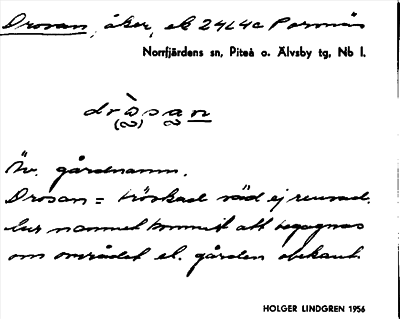 Drosan, åker, ek 24L4c Porsnäs
Norrfjärdens sn, Piteå o. Älvsby tg, Nb l.
Äv. gårdnamn.
Drosan = tröskad säd ej rensad.
hur namnet kommit att begagnas
om området el. gården obekant
HOLGER LINDGREN 1956